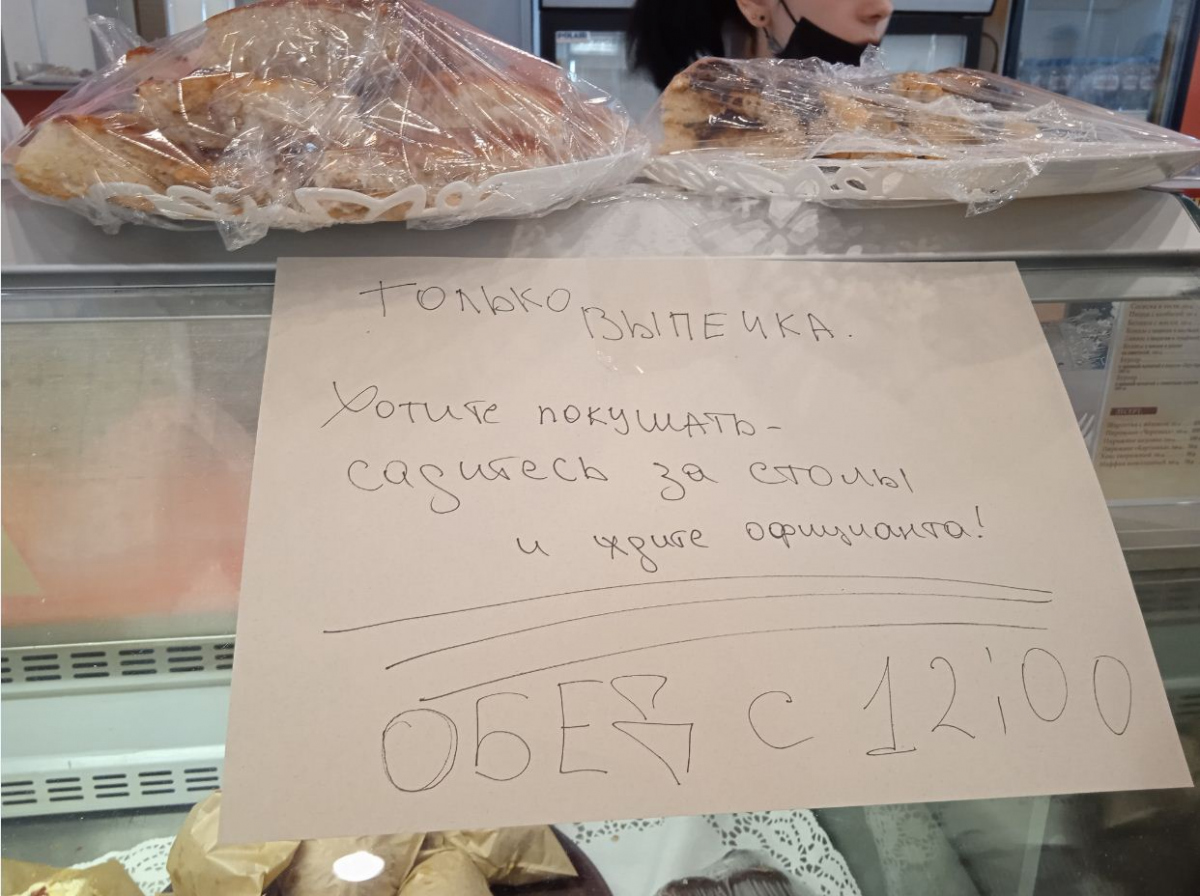 ТОЛЬКО ВЫПЕЧКА.
Хотите покушать -
садитесь за столы
и ждите официанта!
ОБЕД с 12:00
POLAIR